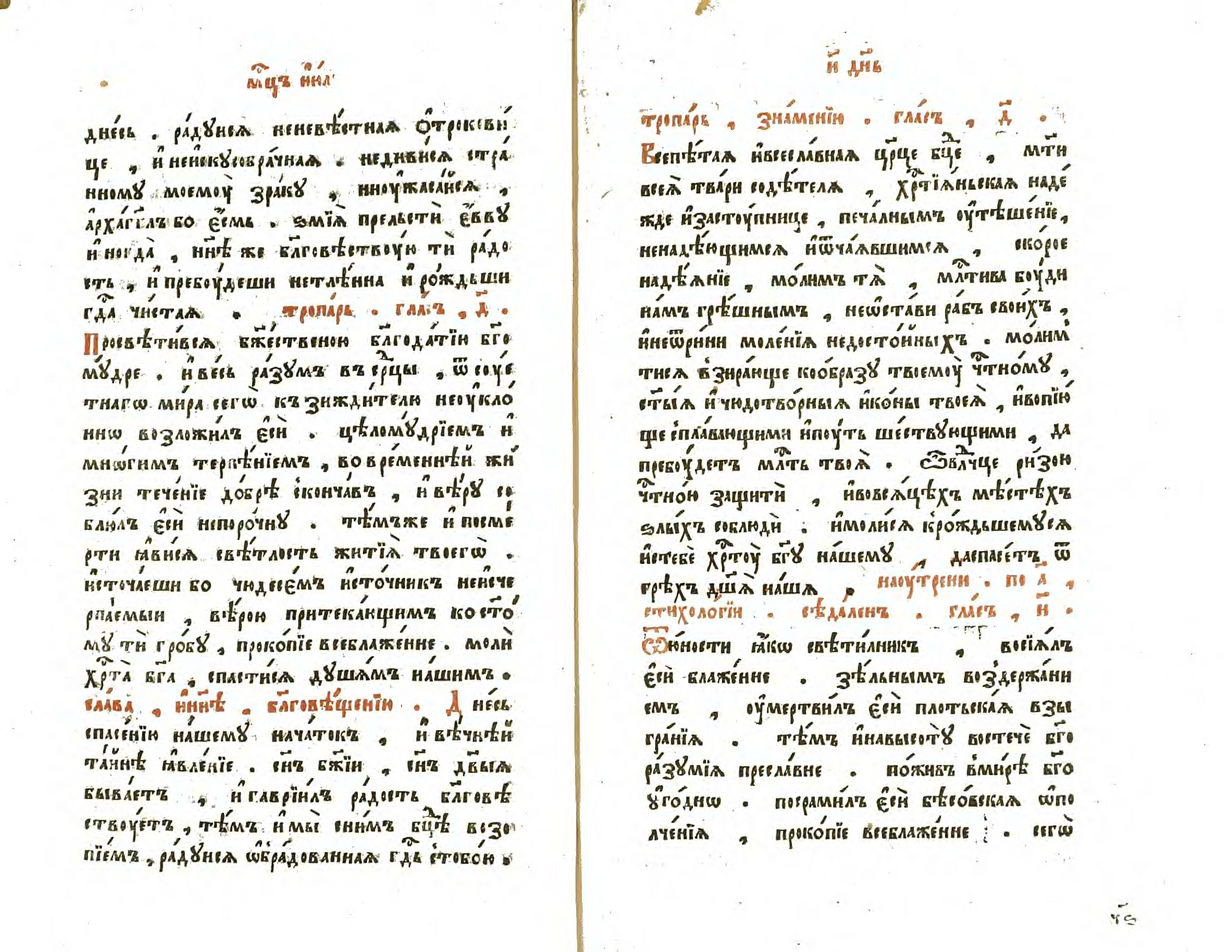 мⷭ҇цъ і҆ю́лⷧ
дне́сь . ра́дꙋисѧ неневѣ́стнаѧ ѻ҆трокови́
це , и҆ неискꙋсобра́чнаѧ . недиви́сѧ стра́
нномꙋ моемоу̀ зра́кꙋ , ниоу҆жаса́йсѧ ,
а҆рха́гг҃лъ бо є҆́смь . ѕмїѧ̀ прельстѝ є҆́ввꙋ
и҆ногда̀ , нн҃ѣ же бл҃говѣствоу́ю тѝ ра́до
сть , и҆ пребоу́деши нетлѣ́нна и҆ ро́ждьши
гдⷭ҇а чи́стаѧ . тропа́рь . гла́съ , д҃ .
Просвѣти́всѧ бж҃е́ственою бл҃года́тїю бг҃о
мꙋ́дре . и҆ весь ра́зꙋмъ въ се́рⷣцы , ѿ сꙋе
тнагѡ ми́ра сегѡ̀ къ зижди́телю неоукло́
ннѡ возложи́лъ є҆сѝ . цѣломꙋ́дрїемъ и҆
мнѡ́гимъ терпѣ́нїемъ , во вре́меннѣй жи́
зни тече́нїе до́брѣ сконча́въ , и҆ вѣ́рꙋ со
блю́лъ є҆сѝ непоро́чнꙋ . тѣ́мъже и҆ посме́
рти ꙗ҆ви́сѧ свѣ́тлость житїѧ̀ твоегѡ̀ .
и҆сточа́еши бо чꙋдесе́мъ и҆сто́чникъ неисче
рпа́емыи , вѣ́рою притека́ющимъ ко ст҃о́
мꙋ тѝ гро́бꙋ , проко́пїе всеблаже́нне . молѝ
хрⷭ҇та̀ бг҃а , спасти́сѧ дꙋша́мъ на́шимъ .
сла́ва , и҆ нн҃ѣ . бл҃говѣ́щенїю . Дне́сь
спасе́нїю на́шемꙋ нача́токъ , и҆ вѣ́чнѣй
та́йнѣ ꙗ҆вле́нїе . сн҃ъ бж҃їи , сн҃ъ дв҃ыѧ
быва́етъ , и҆ гаврїи́лъ ра́дость бл҃говѣ
ствоу́етъ , тѣ́мъ и҆ мы̀ сни́мъ бцⷣѣ возо
пїе́мъ , ра́дꙋисѧ ѡ҆бра́дованнаѧ гдⷭ҇ь стобо́ю .
и҃ дн҃ь
тропа́рь , зна́менїю . гла́съ , д҃ .
Всепѣ́таѧ ивсесла́внаѧ црⷣце бцⷣе , мт҃и
всеѧ̀ тва́ри содѣ́телѧ , хрⷭ҇тїѧ́ньскаѧ наде́
жде и҆засто́упнице , печа́льнымъ оу҆тѣше́нїе ,
ненадѣ́ющимсѧ и҆ѿча́ѧвшимсѧ , ско́рое
надѣ́ѧнїе , мо́лимъ тѧ̀ , млⷭ҇тива боу́ди
на́мъ грѣ́шнымъ , неѡ҆ста́ви ра́бъ свои́хъ ,
и҆неѿри́ни моле́нїѧ недосто́йныхъ . мо́лим
тисѧ взира́юще кообразꙋ твоемоу̀ чтⷭ҇но́мꙋ ,
ст҃ы́ѧ и҆ чюдотво́рныѧ и҆ко́ны твоеѧ̀ , и҆вопїю́
ще спла́вающими и҆поу́ть ше́ствꙋющими , да
пребоу́детъ млⷭ҇ть твоѧ̀ . Ѡ҆влⷣчце ри́зою
чтⷭ҇но́ю защитѝ , и҆вовсѧ́цѣхъ мѣ́стѣхъ
ѕлы́хъ соблюдѝ . и҆моли́сѧ кро́ждьшемꙋсѧ
и҆стебѐ хрⷭ҇тоу̀ бг҃ꙋ на́шемꙋ , даспасе́тъ ѿ
грѣ́хъ дш҃а̀ на́шѧ . наоу́трени . по а҃ ,
стихоло́гїи . сѣда́ленъ . гла́съ , и҃ .
Ѿю҆́ности ꙗ҆́кѡ свѣти́лникъ , восїѧ́лъ
є҆сѝ блаже́нне . зѣ́льнымъ возде́ржани
емъ , оу҆мертви́лъ є҆сѝ пло́тьскаѧ взы
гра́нїѧ . тѣ́мъ и҆навысотꙋ̀ востечѐ бг҃о
ра́зꙋмїѧ пресла́вне . пожи́въ вми́рѣ бг҃о
ꙋ҆го́днѡ . посрами́лъ є҆сѝ бѣсо́вскаѧ ѡ҆по
лче́нїѧ , проко́пїе всеблаже́нне . сегѡ̀